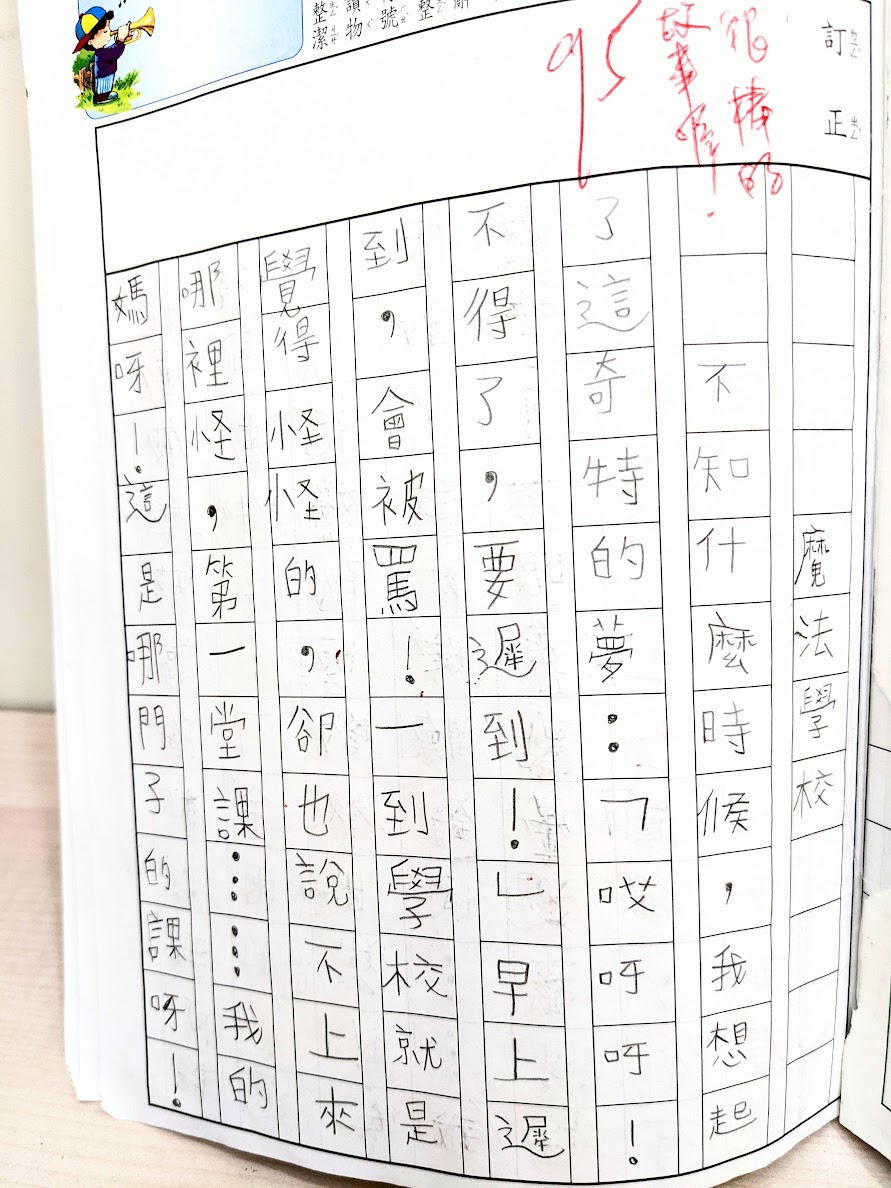 訂ㄉㄧㄥˋ正ㄓㄥˋ
很棒的
故事喔！
95
魔法學校
不知什麼時候，我想起
了這奇特的夢：「哎呀呀！
不得了，要遲到！」早上遲
到，會被罵！一到學校就是
覺得怪怪的，卻也說不上來
哪裡怪，第一堂課……我的
媽呀！這是哪門子的課呀！